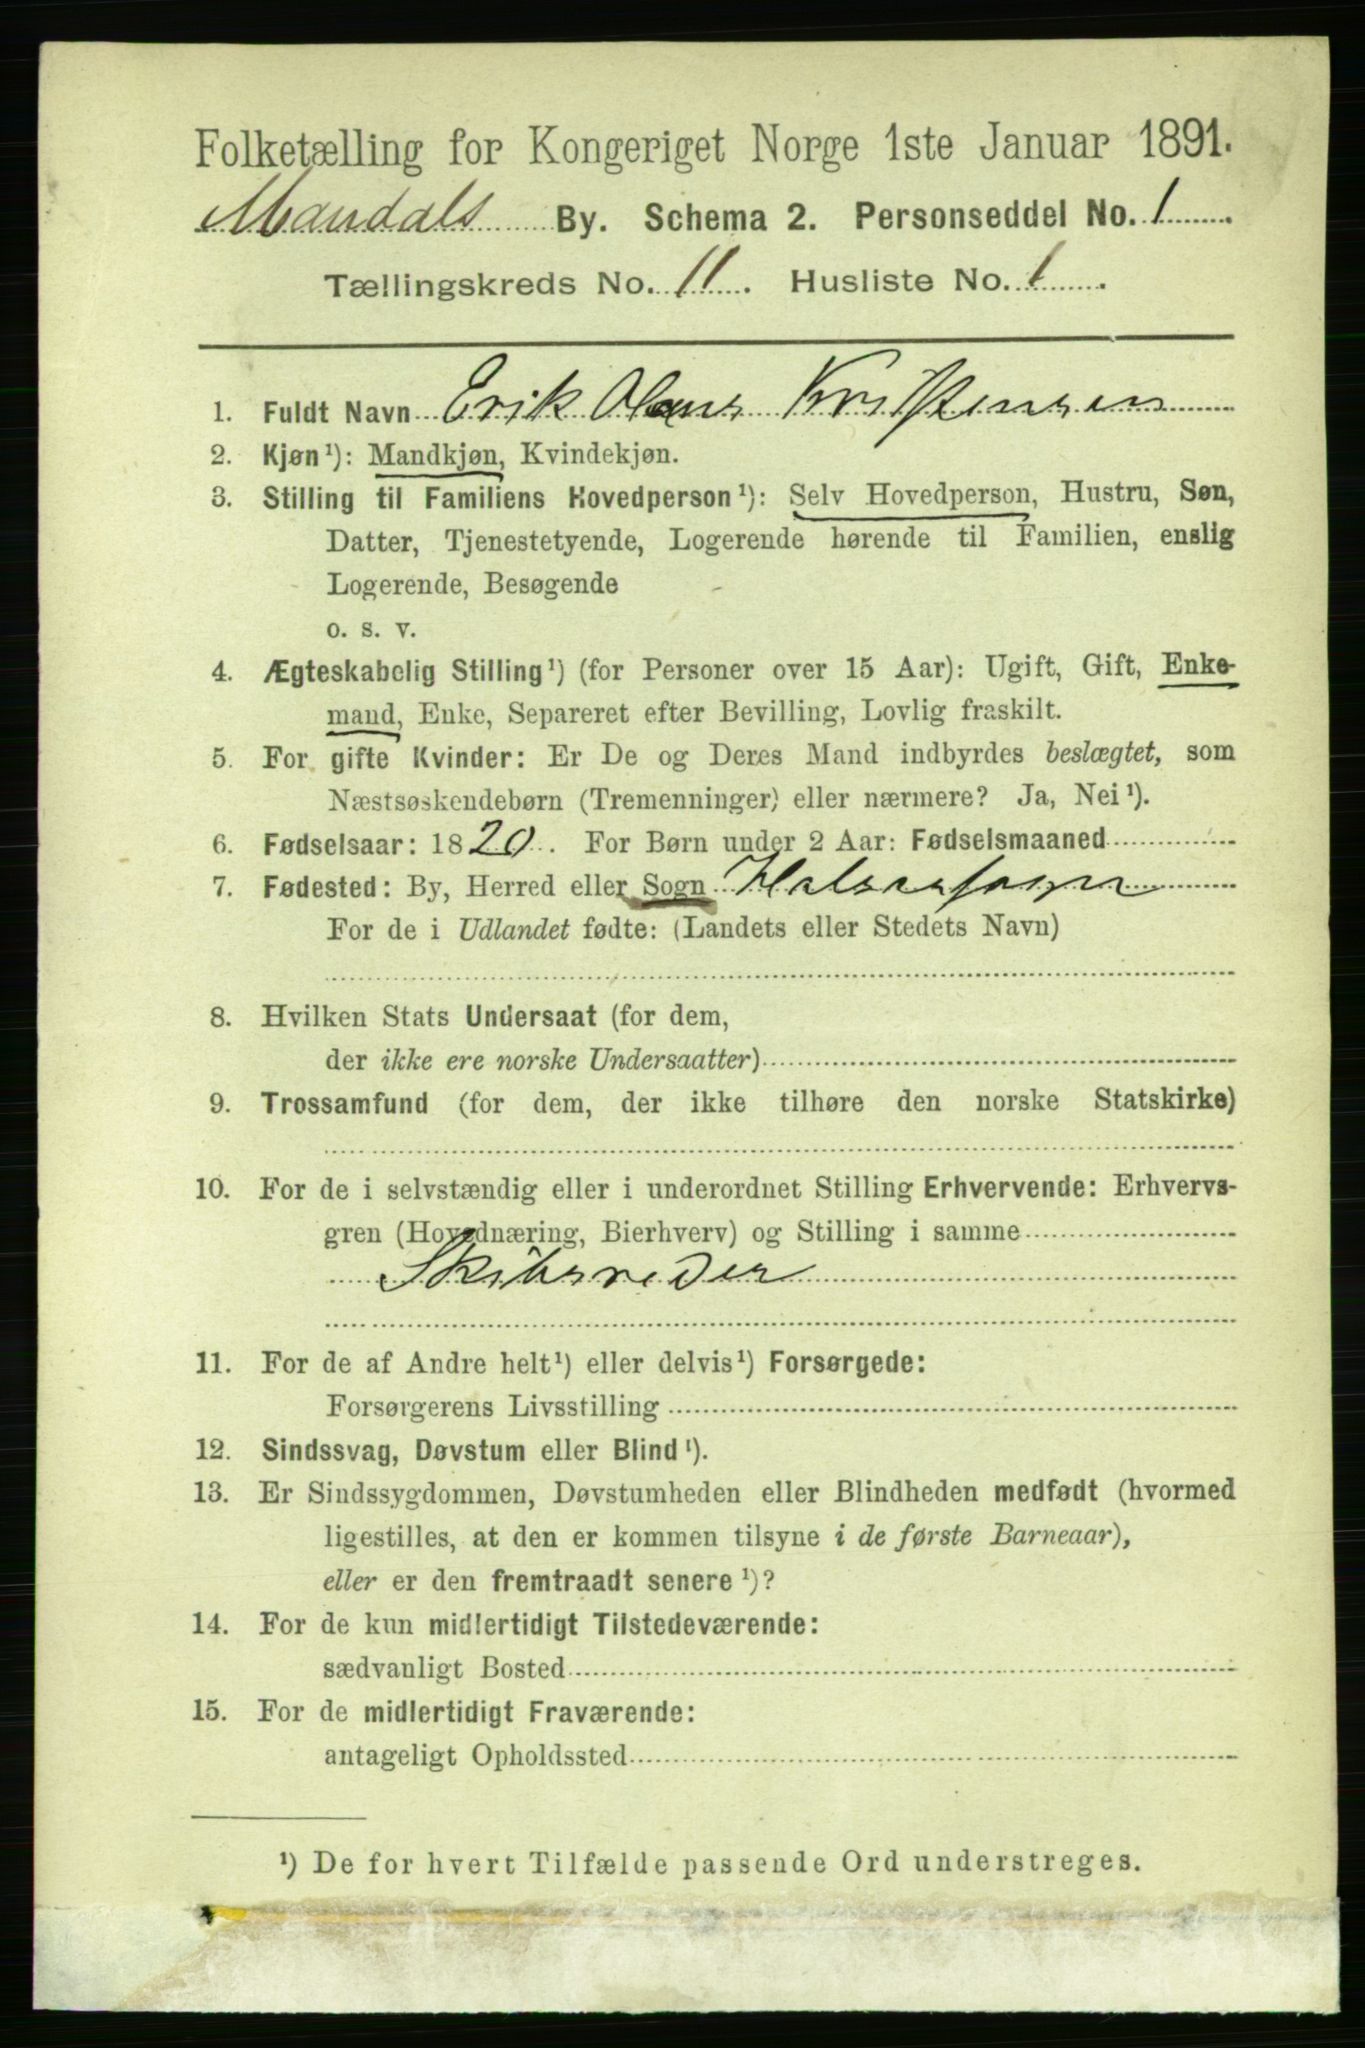 Folketælling for Kongeriget Norge 1ste Januar 1891.
Mandals By. Schema 2. Personseddel No. 1
Tællingskreds No. 11. Husliste No. 1.
1. Fuldt Navn Erik Olaus Kristensen
2. Kjøn¹): Mandkjøn, Kvindekjøn.
3. Stilling til Familiens Hovedperson¹): Selv Hovedperson, Hustru, Søn,
Datter, Tjenestetyende, Logerende hørende til Familien, enslig
Logerende, Besøgende
o. s. v.
4. Ægteskabelig Stilling¹) (for Personer over 15 Aar): Ugift, Gift, Enke-
mand, Enke, Separeret efter Bevilling, Lovlig fraskilt.
5. For gifte Kvinder: Er De og Deres Mand indbyrdes beslægtet, som
Næstsøskendebørn (Tremenninger) eller nærmere? Ja, Nei¹).
6. Fødselsaar: 1820. For Børn under 2 Aar: Fødselsmaaned
7. Fødested: By, Herred eller Sogn Halsaasogn
For de i Udlandet fødte: (Landets eller Stedets Navn)
8. Hvilken Stats Undersaat (for dem,
der ikke ere norske Undersaatter)
9. Trossamfund (for dem, der ikke tilhøre den norske Statskirke)
10. For de i selvstændig eller i underordnet Stilling Erhvervende: Erhvervs-
gren (Hovednæring, Bierhverv) og Stilling i samme
Skibsreder
11. For de af Andre helt¹) eller delvis¹) Forsørgede:
Forsørgerens Livsstilling
12. Sindssvag, Døvstum eller Blind¹).
13. Er Sindssygdommen, Døvstumheden eller Blindheden medfødt (hvormed
ligestilles, at den er kommen tilsyne i de første Barneaar),
eller er den fremtraadt senere¹)?
14. For de kun midlertidigt Tilstedeværende:
sædvanligt Bosted
15. For de midlertidigt Fraværende:
antageligt Opholdssted
¹) De for hvert Tilfælde passende Ord understreges.